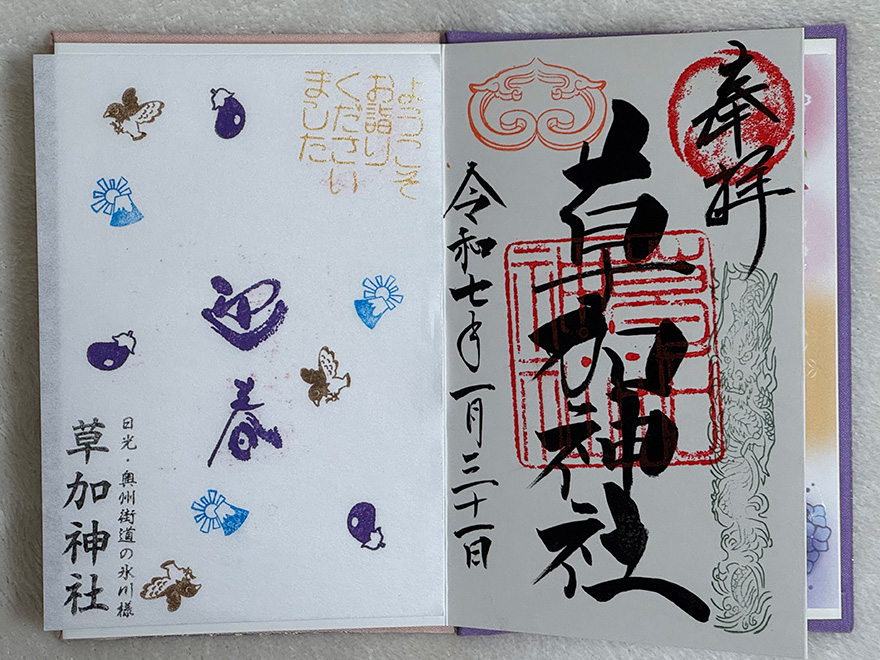 奉拝
草加神社
令和七年一月三十一日
ようこそ
お詣り
ください
ました
迎春
日光・奥州街道の氷川様
草加神社